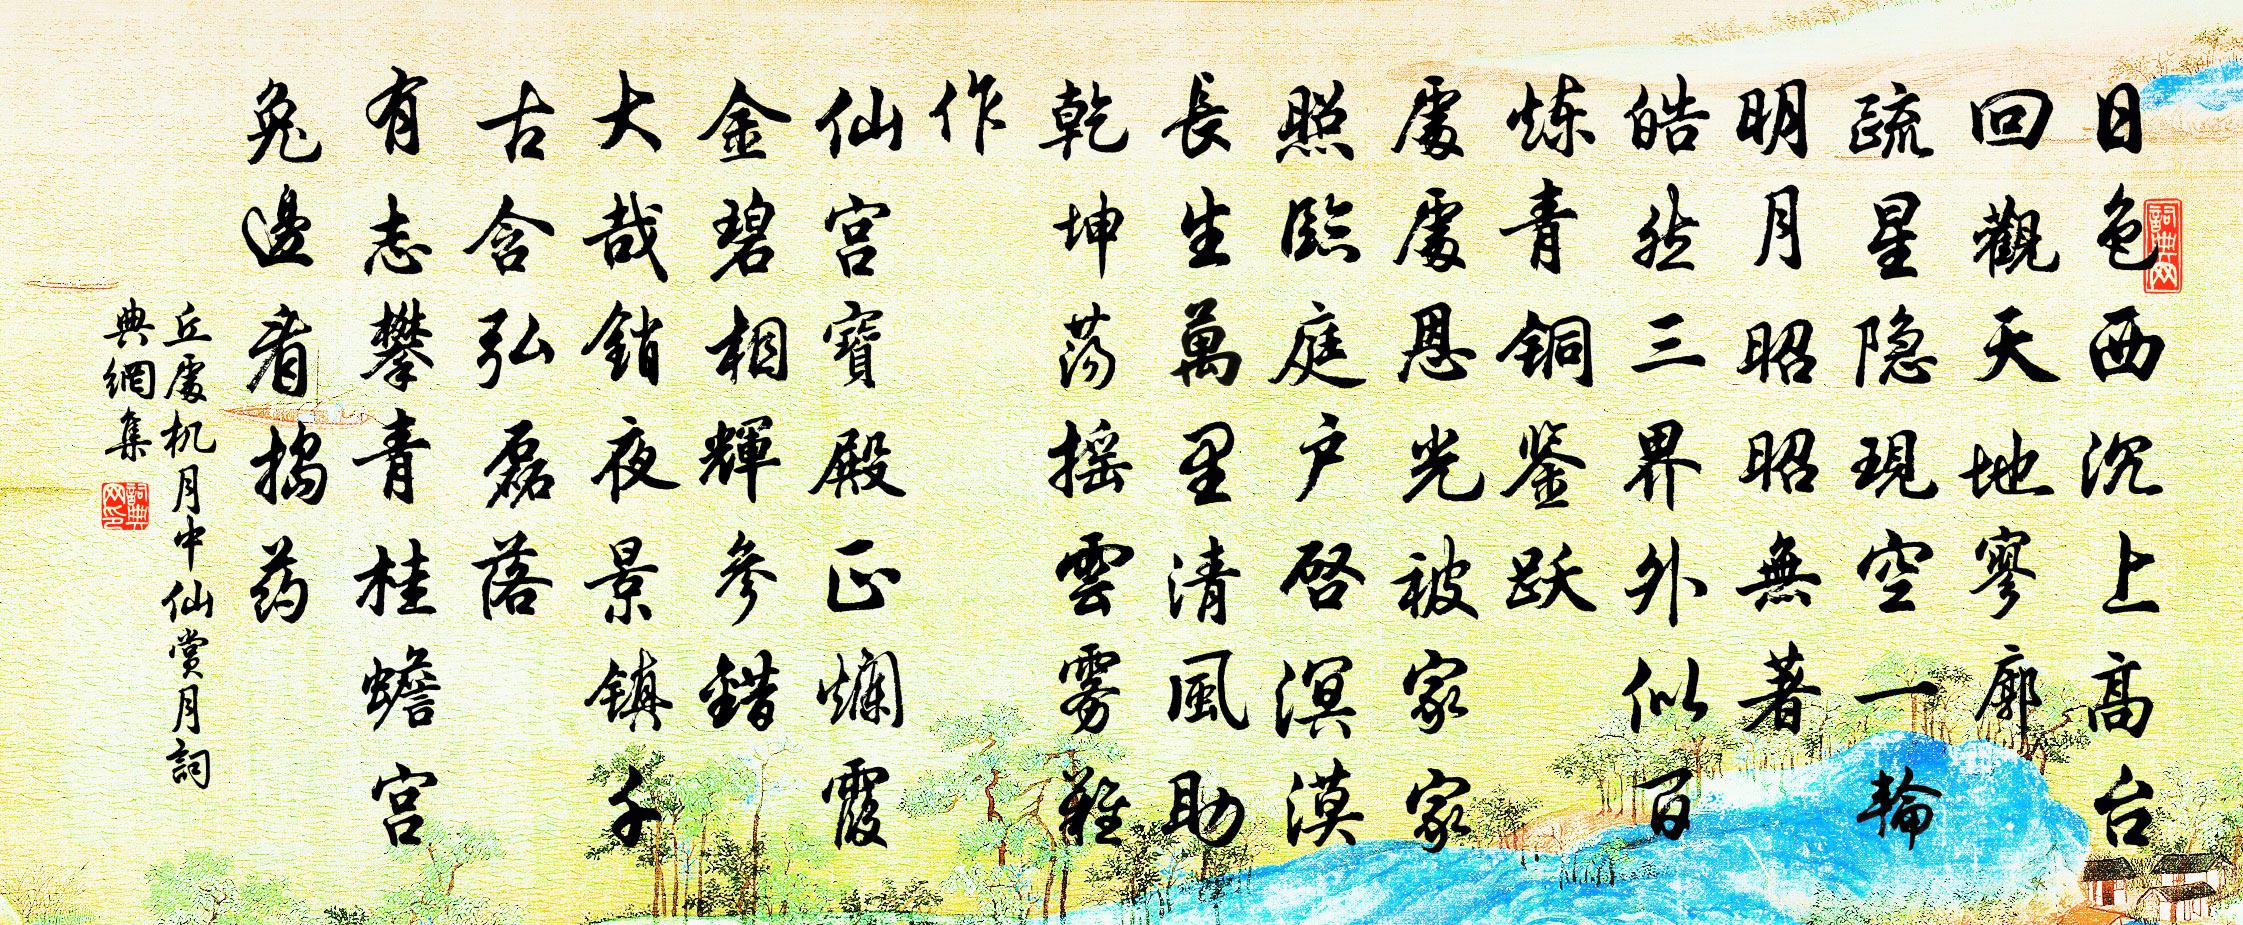 日色西沉上高台
回觀天地寥廓
疏星隐現空一輪
明月昭昭無著
皓然三界外似百
炼青铜鉴跃
處處悬光被家家
照臨庭户启溟漠
長生萬里清風助
乾坤荡摇雲雾難
作
仙宫寶殿正爛霞
金碧相輝參錯
大哉銷夜景镇千
古含弘磊落
有志攀青桂蟾宫
兔邊看搗药
丘處机月中仙赏月詞
典網集
詞典网
詞典网印